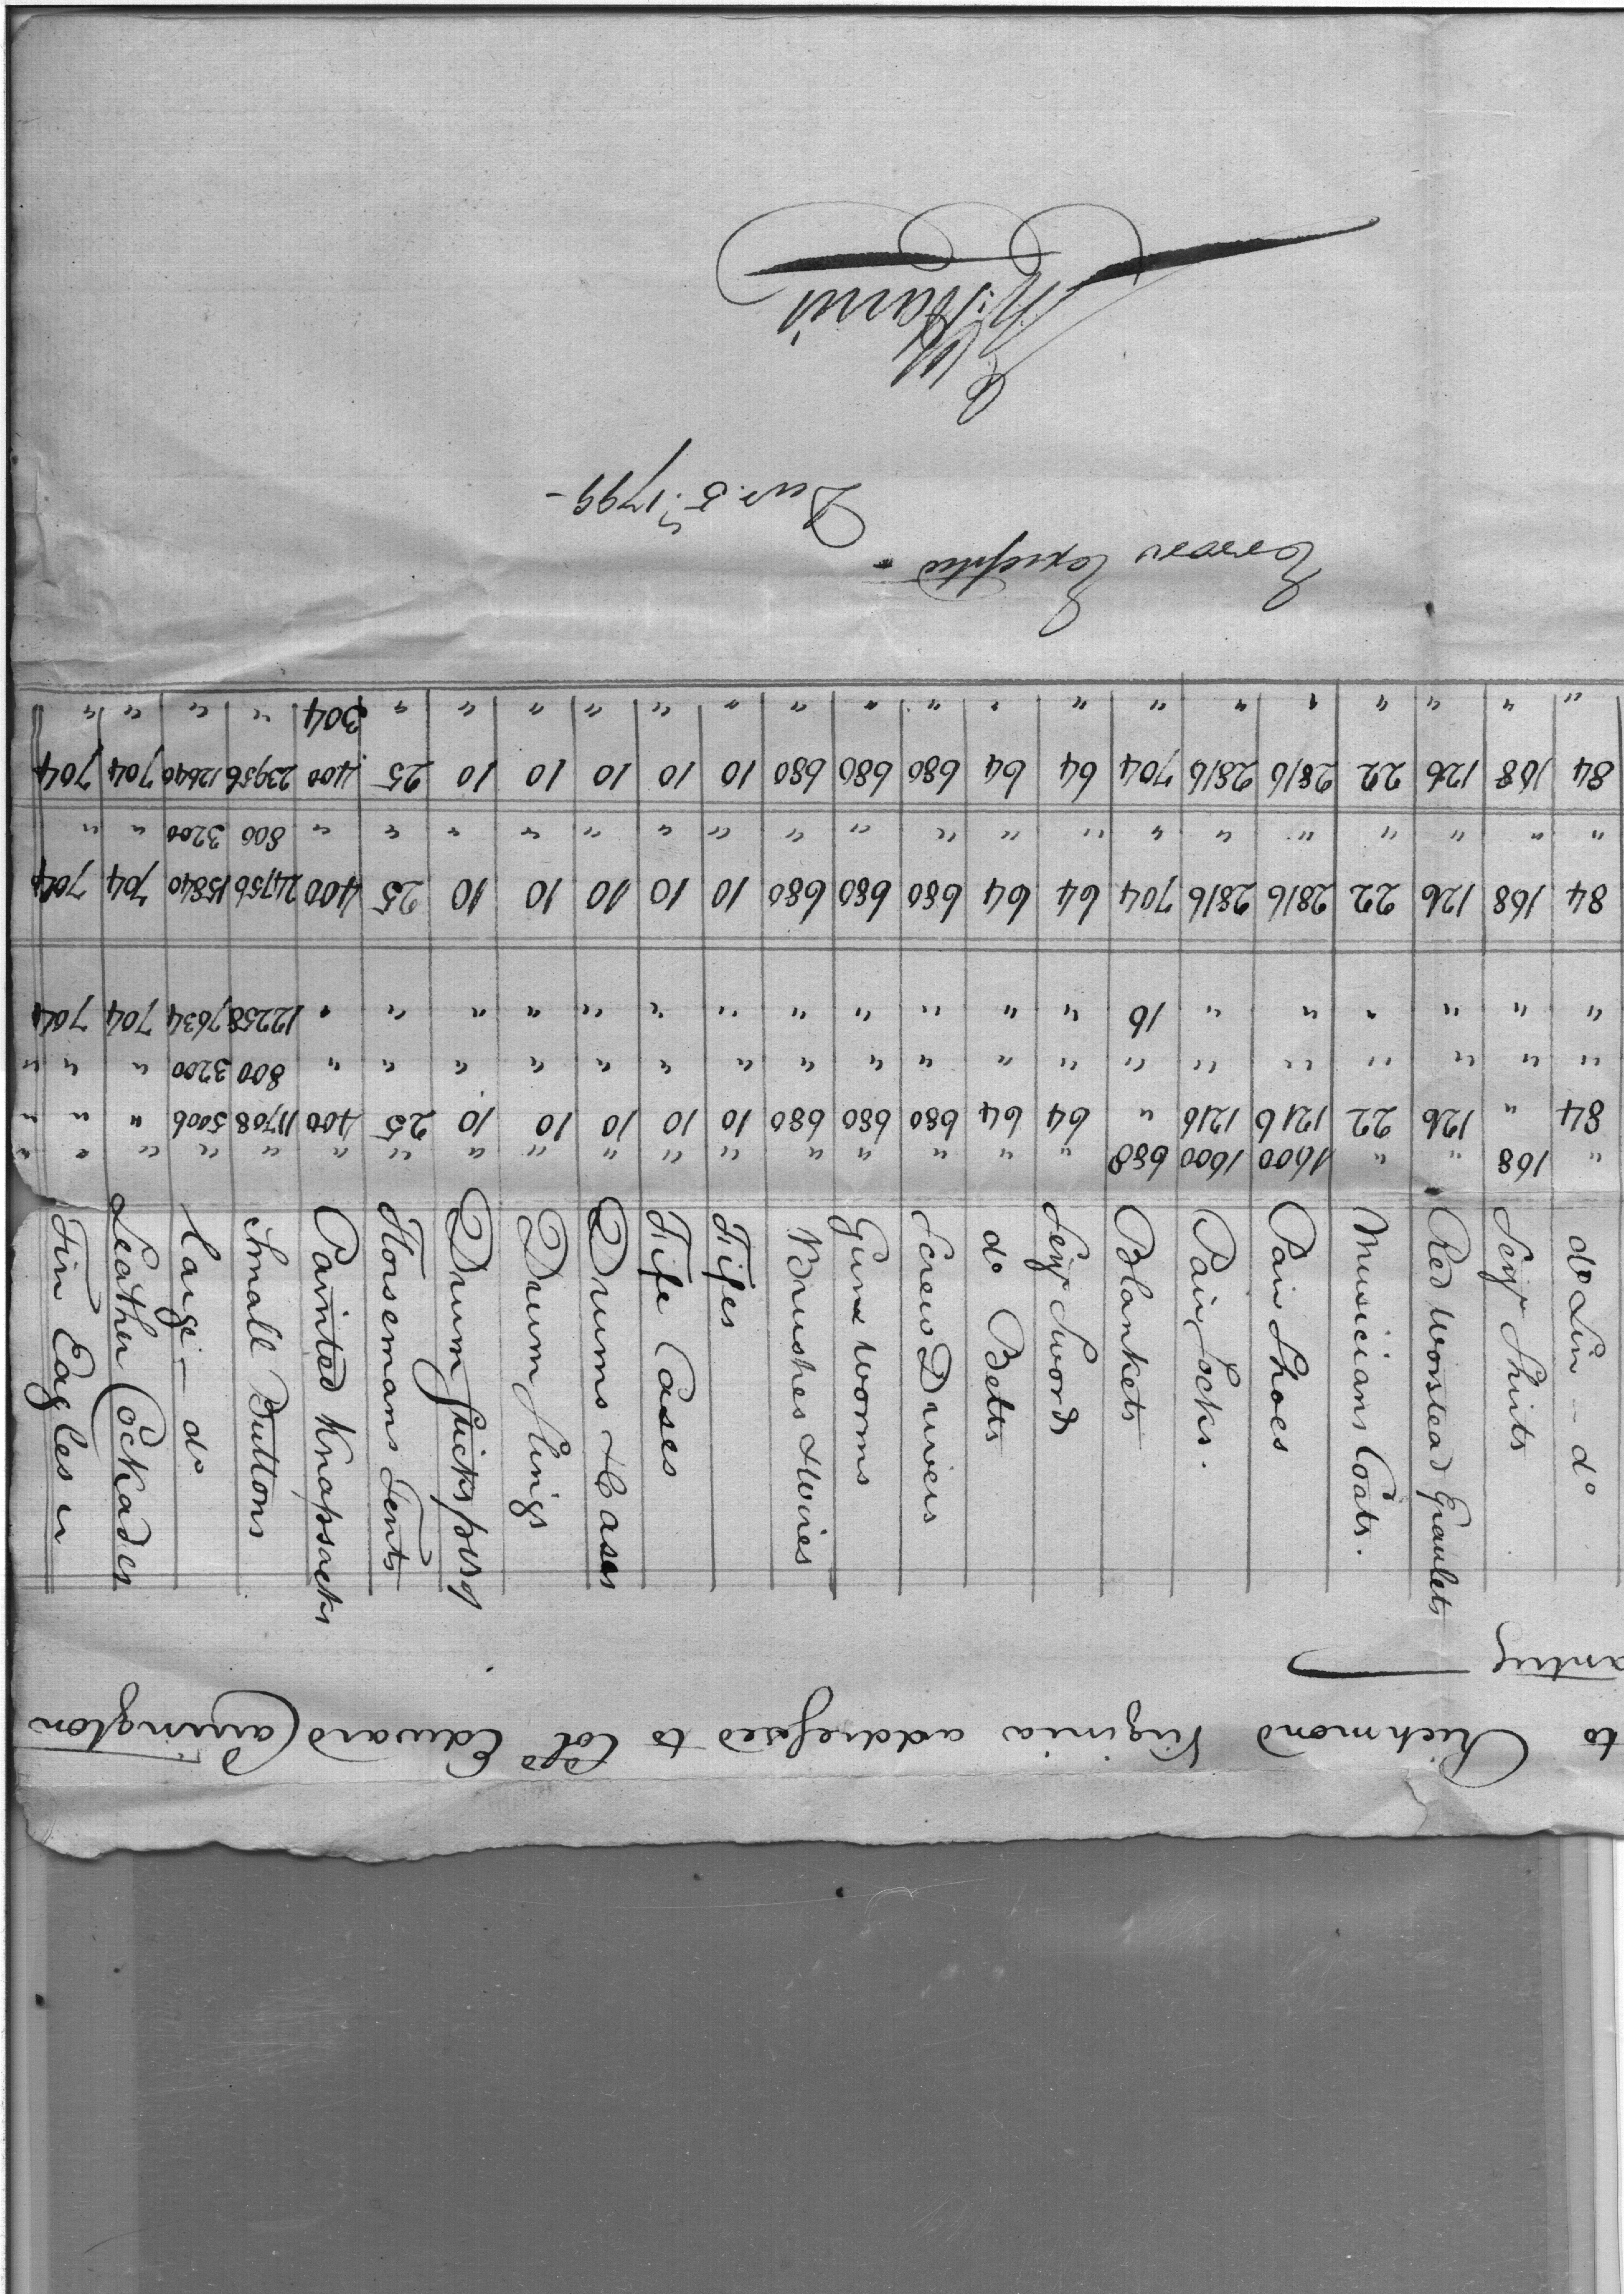 to Richmond Virginia addressed to Col Edward Carrington
anting
do Lin - do
Serjt Shirts
Red Worsted Epaulets
Musicians Coats.
Pair Shoes
Pair Socks.
Blankets
Serjt Swords
do Belts
Screw Drivers
Gun Worms
Brushes & Wires
Fifes
Fife Cases
Drums & Cases
Drum Slings
Drum Sticks prs
Horsemans Tents
Painted Knapsacks
Small Buttons
Large - do
Leather Cockades
Tin Eagles
" 168 " " 1600 1600 688 " " " " " " " " " " " " " " " "
84 " 126 22 1216 1216 " 64 64 680 680 680 10 10 10 10 10 25 400 11708 5006 " "
" " " " " " " " " " " " " " " " " " " 800 3200 " "
" " " " " " 16 " " " " " " " " " " " " 12258 7634 704 704
84 168 126 22 2816 2816 704 64 64 680 680 680 10 10 10 10 10 25 400 24756 15840 704 704
" " " " " " " " " " " " " " " " " " " 800 3200 " "
84 168 126 22 2816 2816 704 64 64 680 680 680 10 10 10 10 10 25 400 23956 12640 704 704
" " " " " " " " " " " " " " " " " " 304 " " " "
Errors Excepted -
Decr. 5th 1799 -
Harris